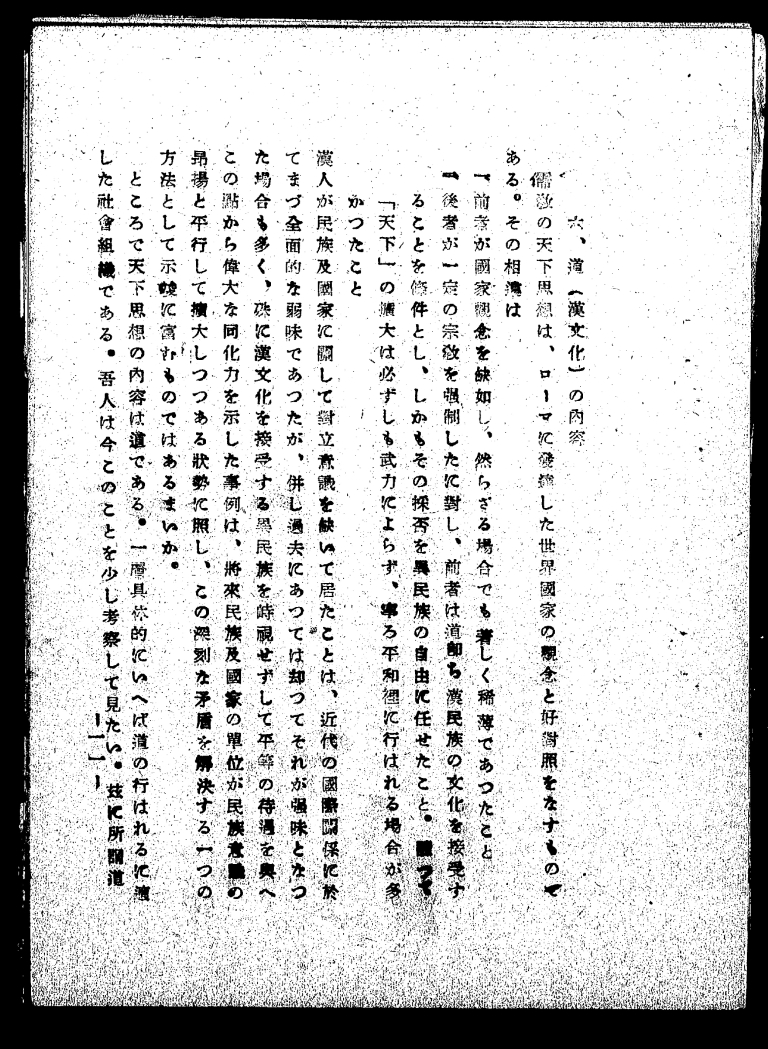 六、道(漢文化)の內容
儒敎の天下思想は、ローマに發達した世界國家の觀念と好對照をなすもので
ある。その相違は
一、前者が國家觀念を缺如し、然らざる場合でも著しく稀薄であつたこと
一、後者が一定の宗敎を强制したに對し、前者は道卽ち漢民族の文化を接受す
ることを條件とし、しかもその採否を異民族の自由に任せたこと。從つて
「天下」の擴大は必ずしも武力によらず、寧ろ平和裡に行はれる場合が多
かつたこと
漢人が民族及國家に關して對立意識を缺いて居たことは、近代の國際關係に於
てまづ全面的な弱味であつたが、併し過去にあつては却つてそれが强味となつ
た場合も多く、殊に漢文化を接受する異民族を歧視せずして平等の待遇を與へ
この點から偉大な同化力を示した事例は、將來民族及國家の單位が民族意識の
昻揚と平行して擴大しつつある狀勢に照し、この深刻な矛盾を解決する一つの
方法として示唆に富むものではあるまいか。
ところで天下思想の內容は道である。一層具體的にいへば道の行はれるに適
した社會組織である。吾人は今このことを少し考察して見たい。玆に所謂道
―一一―